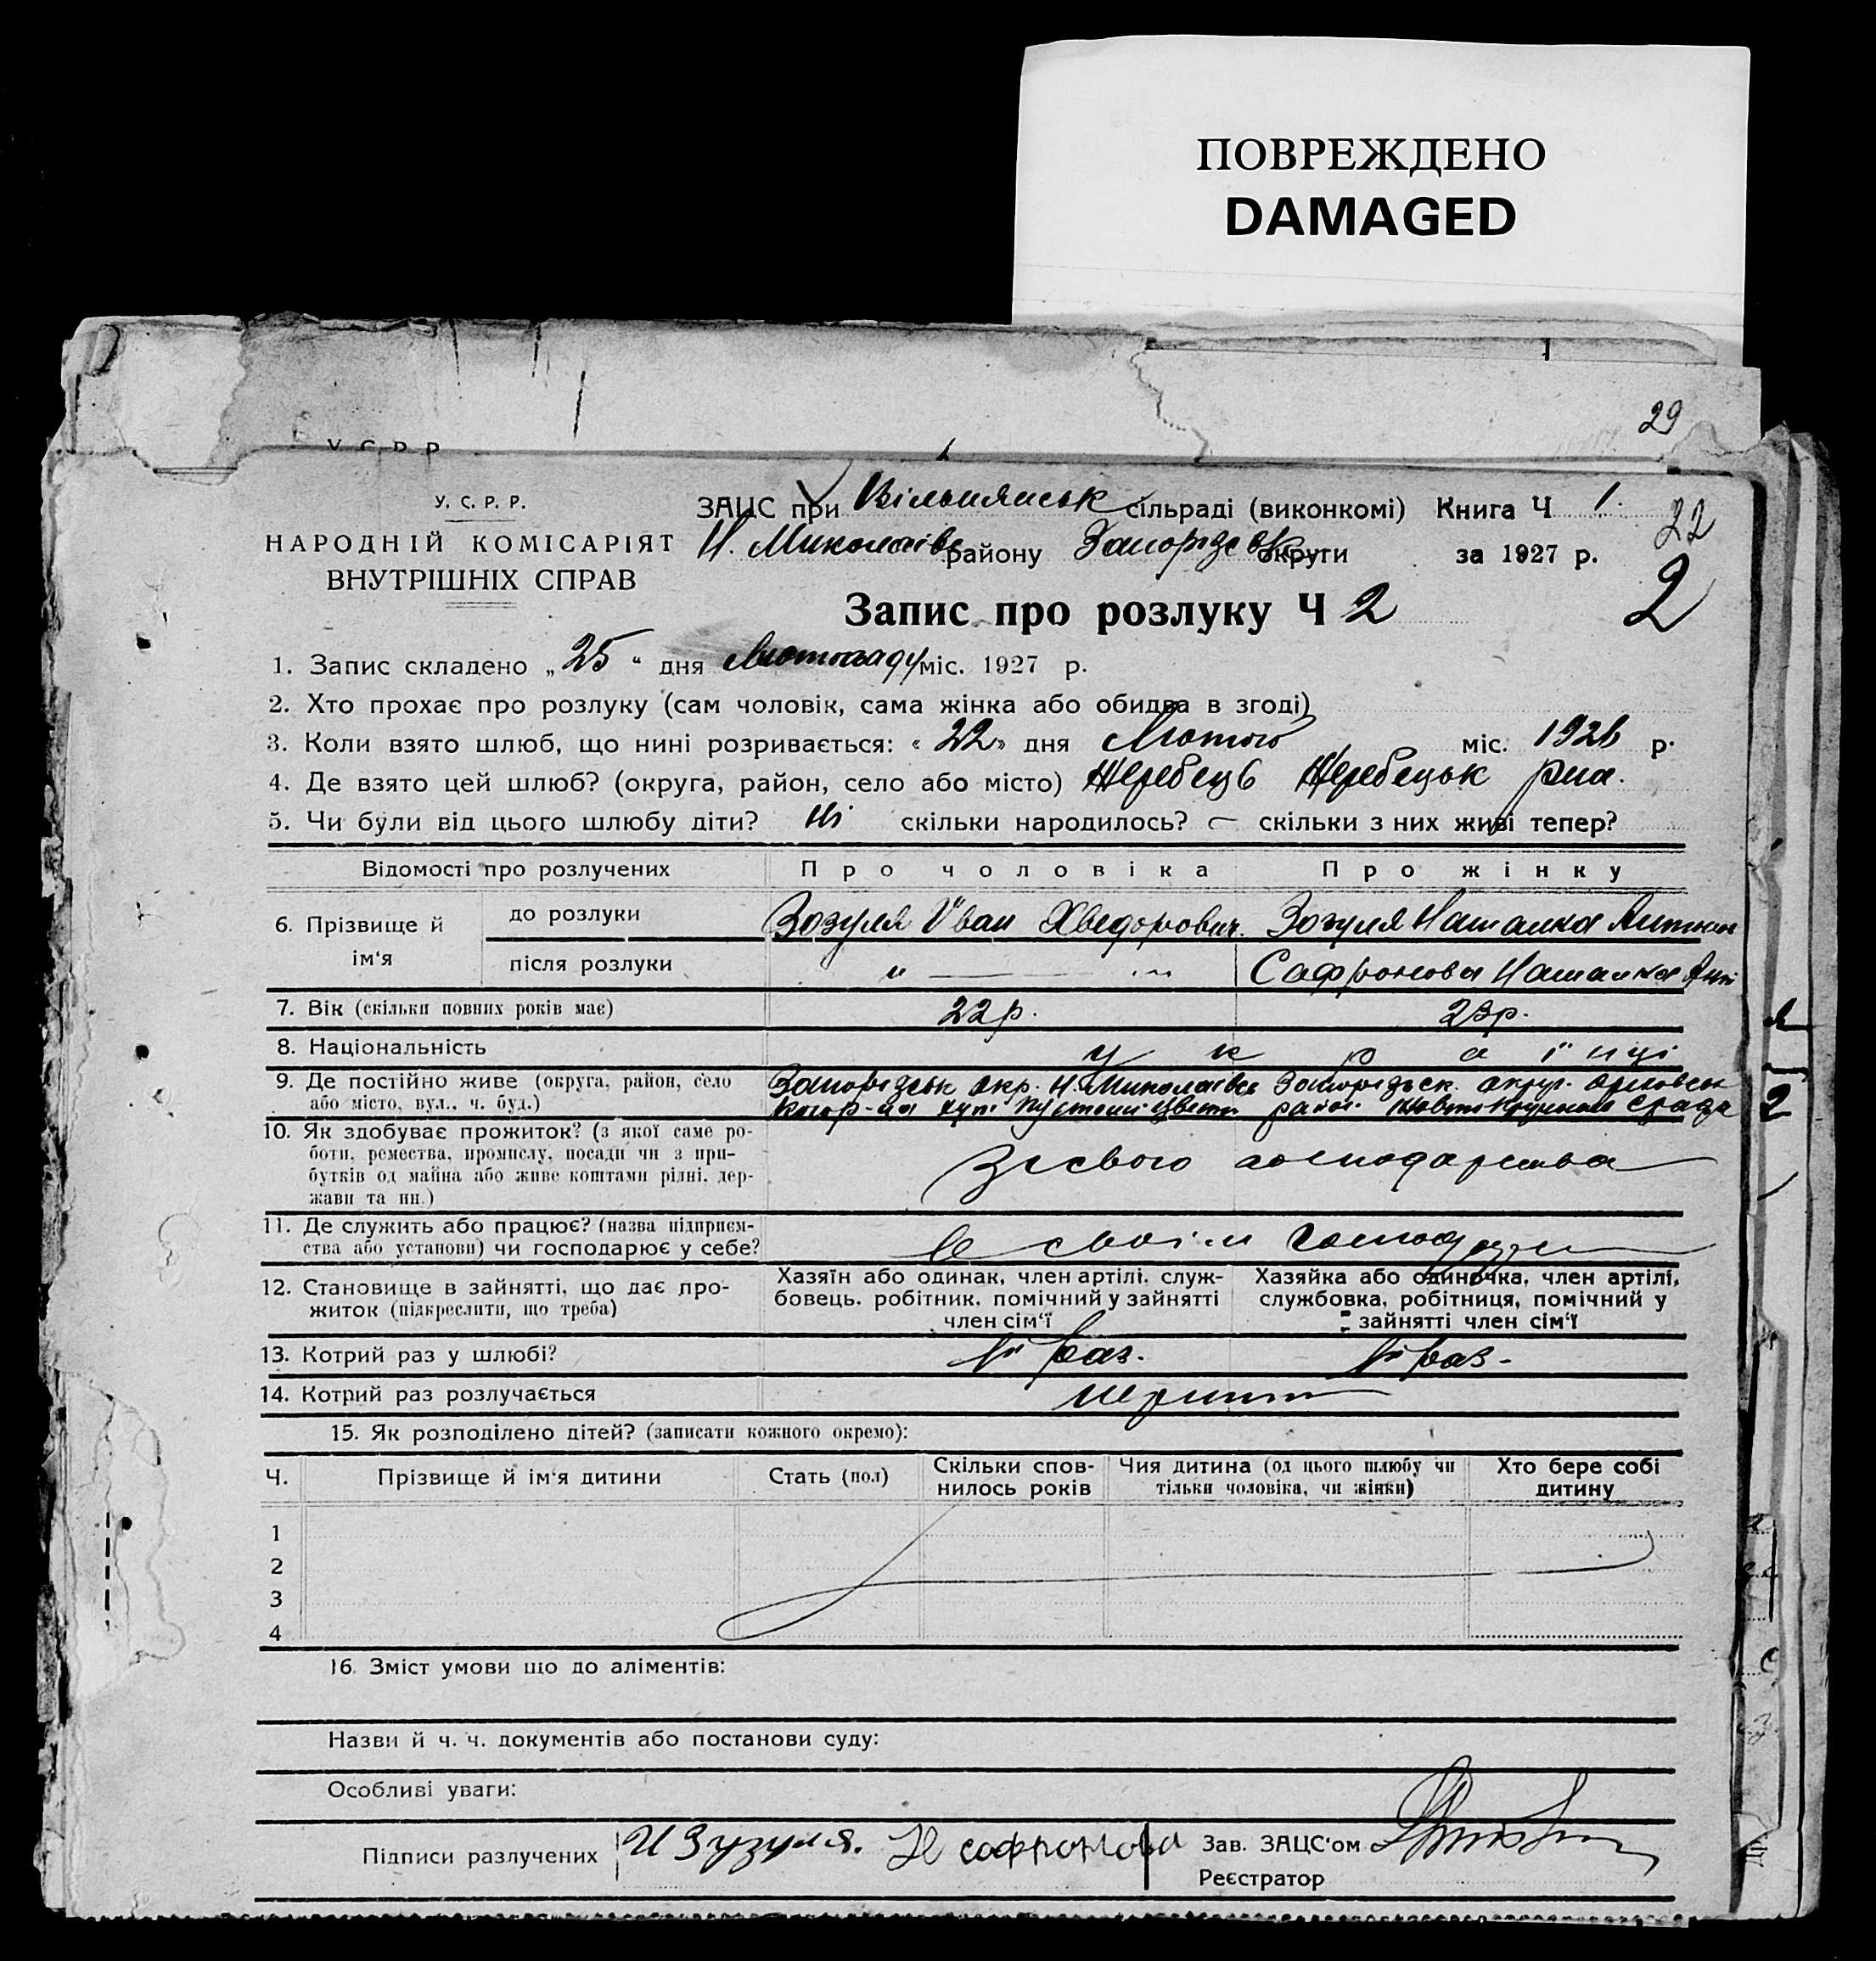 ПОВРЕЖДЕНО
DAMAGED
29
У. С. Р. Р.
У. С. Р. Р.
НАРОДНІЙ КОМІСАРІЯТ
ВНУТРІШНІХ СПРАВ
ЗАЦС при Вільнянськ сільраді (виконкомі) Книга Ч 1.
22
Н. Миколаївс району Запорізськ округи за 1927 р.
2
Запис про розлуку Ч 2
1. Запис складено „25“ дня Лютопаду міс. 1927 р.
2. Хто прохає про розлуку (сам чоловік, сама жінка або обидва в згоді)
3. Коли взято шлюб, що нині розривається: «22» дня Лютого міс. 1926 р.
4. Де взято цей шлюб? (округа, район, село або місто) Жеребець Жеребецьк рна.
5. Чи були від цього шлюбу діти? Ні скільки народилось? — скільки з них живі тепер?
Відомості про розлучених Про чоловіка Про жінку
6. Прізвище й ім‘я
до розлуки Зозуля Іван Хведорович. Зозуля Наталка Антон
після розлуки „ — — „ Сафронова Наталка Ант
7. Вік (скільки повних років має) 22 р. 23 р.
8. Національність українці
9. Де постійно живе (округа, район, село
або місто, вул., ч. буд.)
Запорізськ окр. Н. Миколаївс
Запорізьск. округ. Орловськ
район.
10. Як здобуває прожиток? (з якої саме ро-
боти, ремества, промислу, посади чи з при-
бутків од майна або живе коштами рідні, дер-
жави та ин.)
З свого господарства
11. Де служить або працює? (назва підприєм-
ства або установи) чи господарює у себе?
в своїм господар
12. Становище в зайнятті, що дає про-
житок (підкреслити, що треба)
Хазяїн або одинак, член артілі, служ-
бовець, робітник, помічний у зайнятті
член сім‘ї
Хазяйка або одиночка, член артілі,
службовка, робітниця, помічний у
зайнятті член сім‘ї
13. Котрий раз у шлюбі? 1й раз. 1й раз.
14. Котрий раз розлучається
15. Як розподілено дітей? (записати кожного окремо):
Ч. Прізвище й ім‘я дитини Стать (пол) Скільки спов-
нилось років Чия дитина (од цього шлюбу чи
тільки чоловіка, чи жінки) Хто бере собі
дитину
1
2
3
4
16. Зміст умови що до аліментів:
Назви й ч. ч. документів або постанови суду:
Особливі уваги:
Підписи разлучених И Зузуля. Н сафронова Зав. ЗАЦС‘ом
Реєстратор